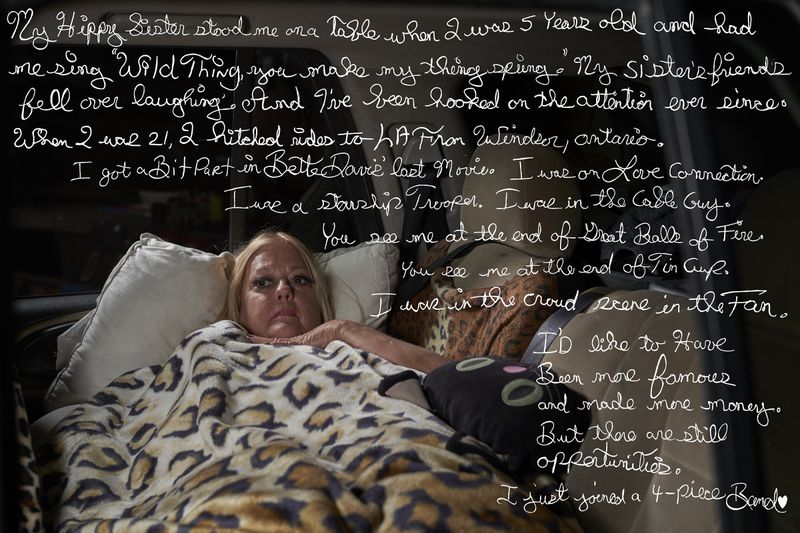 My Hippy Sister stood me on a Table when I was 5 Years old and had
me sing "Wild Thing, you make my thing spring." My sister's friends
fell over laughing. And I've been hooked on the attention ever since.
When I was 21, I hitched rides to LA From Windsor, ontario.
I got a Bit Part in Bette Davis' last Movie. I was on Love Connection.
I was a starship Trooper. I was in the Cable Guy.
You see me at the end of Great Balls of Fire.
You see me at the end of Tin Cup.
I was in the crowd scene in the Fan.
I'D like to Have
Been more famous
and made more money.
But there are still
opportunities.
I just joined a 4-piece Band♥